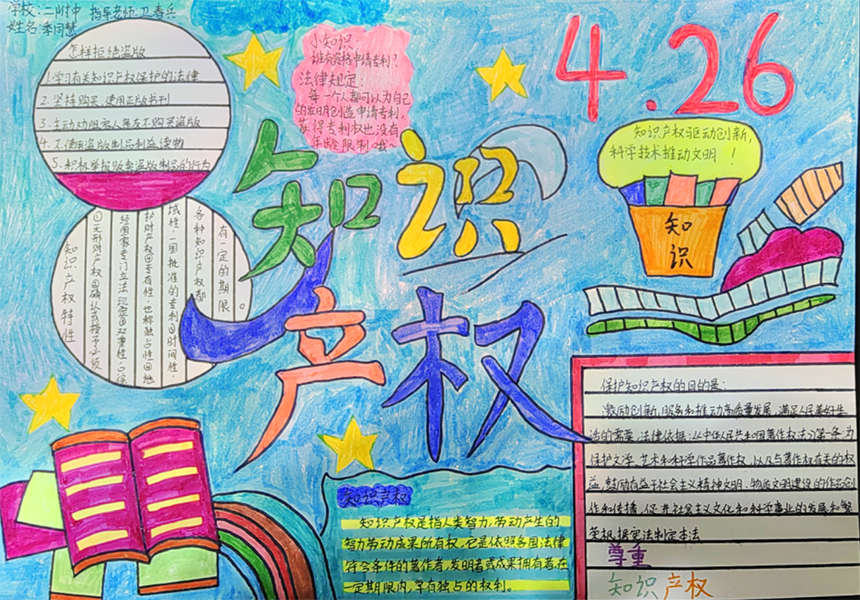 学校:二附中 指导老师:卫春兵
姓名:季同慧
怎样拒绝盗版
1.学习有关知识产权保护的法律
2.坚持购买、使用正版书刊
3.主动劝阻家人等友不购买盗版
4.不使用盗版制品利益读物
5.积极举报贩卖盗版制品的行为
小知识:
谁有资格申请专利?
法律规定:
每一个人都可以为自己
的发明创造申请专利。
获得专利权也没有
年龄限制哦~
4.26
知识产权驱动创新,
科学技术推动文明!
知识
知识
产权
有一定的期限。
各种知识产权都
域性,一国批准的专利④时间性,
护财产权②专有性,也称独占性③地
经国家专门立法
①无形财产权
知识产权特性
保护知识产权的目的是:
激励创新,服务和推动高质量发展,满足人民美好生
活的需要。法律依据:《中华人民共和国著作权法》第一条为
保护文学、艺术和科学作品著作权,以及与著作权有关的权
益,鼓励有益于社会主义精神文明、物质文明建设的作品创
作和传播,促进社会主义文化和科学事业的发展和繁
荣,根据宪法制定本法
尊重
知识产权
知识产权
知识产权是指人类智力劳动产生的
智力劳动成果所有权。它是依照各国法律
符合条件的著作者、发明者或成果拥有者在
一定期限内,享有独占的权利。